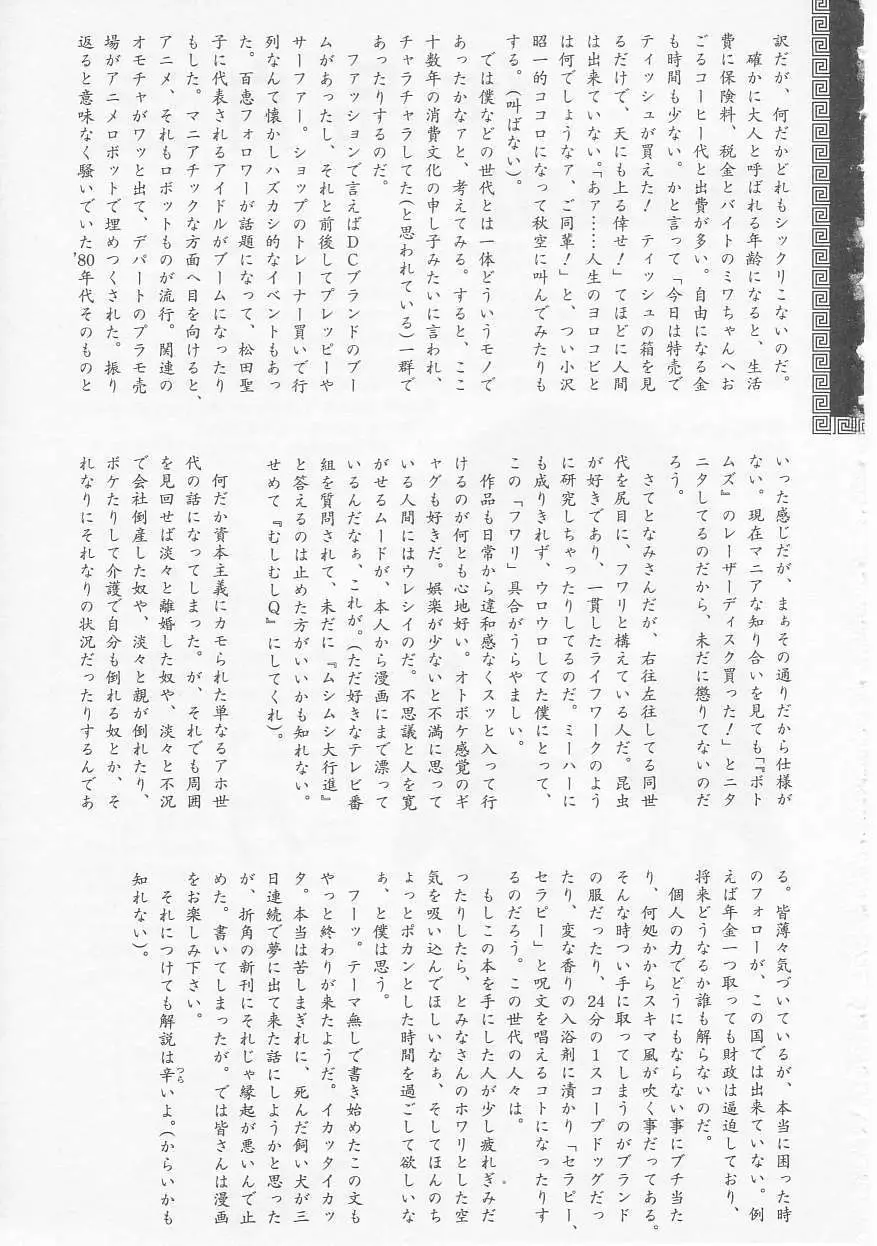 訳だが、何だかどれもシックリこないのだ。
　確かに大人と呼ばれる年齢になると、生活
費に保険料、税金とバイトのミワちゃんへお
ごるコーヒー代と出費が多い。自由になる金
も時間も少ない。かと言って「今日は特売で
ティッシュが買えた！　ティッシュの箱を見
るだけで、天にも上る倖せ！」てほどに人間
は出来ていない。「あァ……人生のヨロコビと
は何でしょうなァ、ご同輩！」と、つい小沢
昭一的ココロになって秋空に叫んでみたりも
する。（叫ばない）。
　では僕などの世代とは一体どういうモノで
あったかなァと、考えてみる。すると、ここ
十数年の消費文化の申し子みたいに言われ、
チャラチャラしてた（と思われている）一群で
あったりするのだ。
　ファッションで言えばＤＣブランドのブー
ムがあったし、それと前後してプレッピーや
サーファー。ショップのトレーナー買いで行
列なんて懐かしハズカシ的なイベントもあっ
た。百恵フォロワーが話題になって、松田聖
子に代表されるアイドルがブームになったり
もした。マニアチックな方面へ目を向けると、
アニメ、それもロボットものが流行。関連の
オモチャがワッと出て、デパートのプラモ売
場がアニメロボットで埋めつくされた。振り
返ると意味なく騒いでいた'80年代そのものと
いった感じだが、まぁその通りだから仕様が
ない。現在マニアな知り合いを見ても「『ボト
ムズ』のレーザーディスク買った！」とニタ
ニタしてるのだから、未だに懲りてないのだ
ろう。
　さてとなみさんだが、右往左往してる同世
代を尻目に、フワリと構えている人だ。昆虫
が好きであり、一貫したライフワークのよう
に研究しちゃったりしてるのだ。ミーハーに
も成りきれず、ウロウロしてた僕にとって、
この「フワリ」具合がうらやましい。
　作品も日常から違和感なくスッと入って行
けるのが何とも心地好い。オトボケ感覚のギ
ャグも好きだ。娯楽が少ないと不満に思って
いる人間にはウレシイのだ。不思議と人を寛
がせるムードが、本人から漫画にまで漂って
いるんだなぁ、これが。（ただ好きなテレビ番
組を質問されて、未だに『ムシムシ大行進』
と答えるのは止めた方がいいかも知れない。
せめて『むしむしＱ』にしてくれ）。
　何だか資本主義にカモられた単なるアホ世
代の話になってしまった。が、それでも周囲
を見回せば淡々と離婚した奴や、淡々と不況
で会社倒産した奴や、淡々と親が倒れたり、
ボケたりして介護で自分も倒れる奴とか、そ
れなりにそれなりの状況だったりするんであ
る。皆薄々気づいているが、本当に困った時
のフォローが、この国では出来ていない。例
えば年金一つ取っても財政は逼迫しており、
将来どうなるか誰も解らないのだ。
　個人の力でどうにもならない事にブチ当た
り、何処かからスキマ風が吹く事だってある。
そんな時つい手に取ってしまうのがブランド
の服だったり、24分の１スコープドッグだっ
たり、変な香りの入浴剤に漬かり「セラピー、
セラピー」と呪文を唱えるコトになったりす
るのだろう。この世代の人々は。
　もしこの本を手にした人が少し疲れぎみだ
ったりしたら、とみなさんのホワリとした空
気を吸い込んでほしいなぁ、そしてほんのち
ょっとポカンとした時間を過ごして欲しいな
ぁ、と僕は思う。
　フーッ。テーマ無しで書き始めたこの文も
やっと終わりが来たようだ。イカッタイカッ
タ。本当は苦しまぎれに、死んだ飼い犬が三
日連続で夢に出て来た話にしようかと思った
が、折角の新刊にそれじゃ縁起が悪いんで止
めた。書いてしまったが。では皆さんは漫画
をお楽しみ下さい。
　それにつけても解説は辛つらいよ。（からいかも
知れない）。